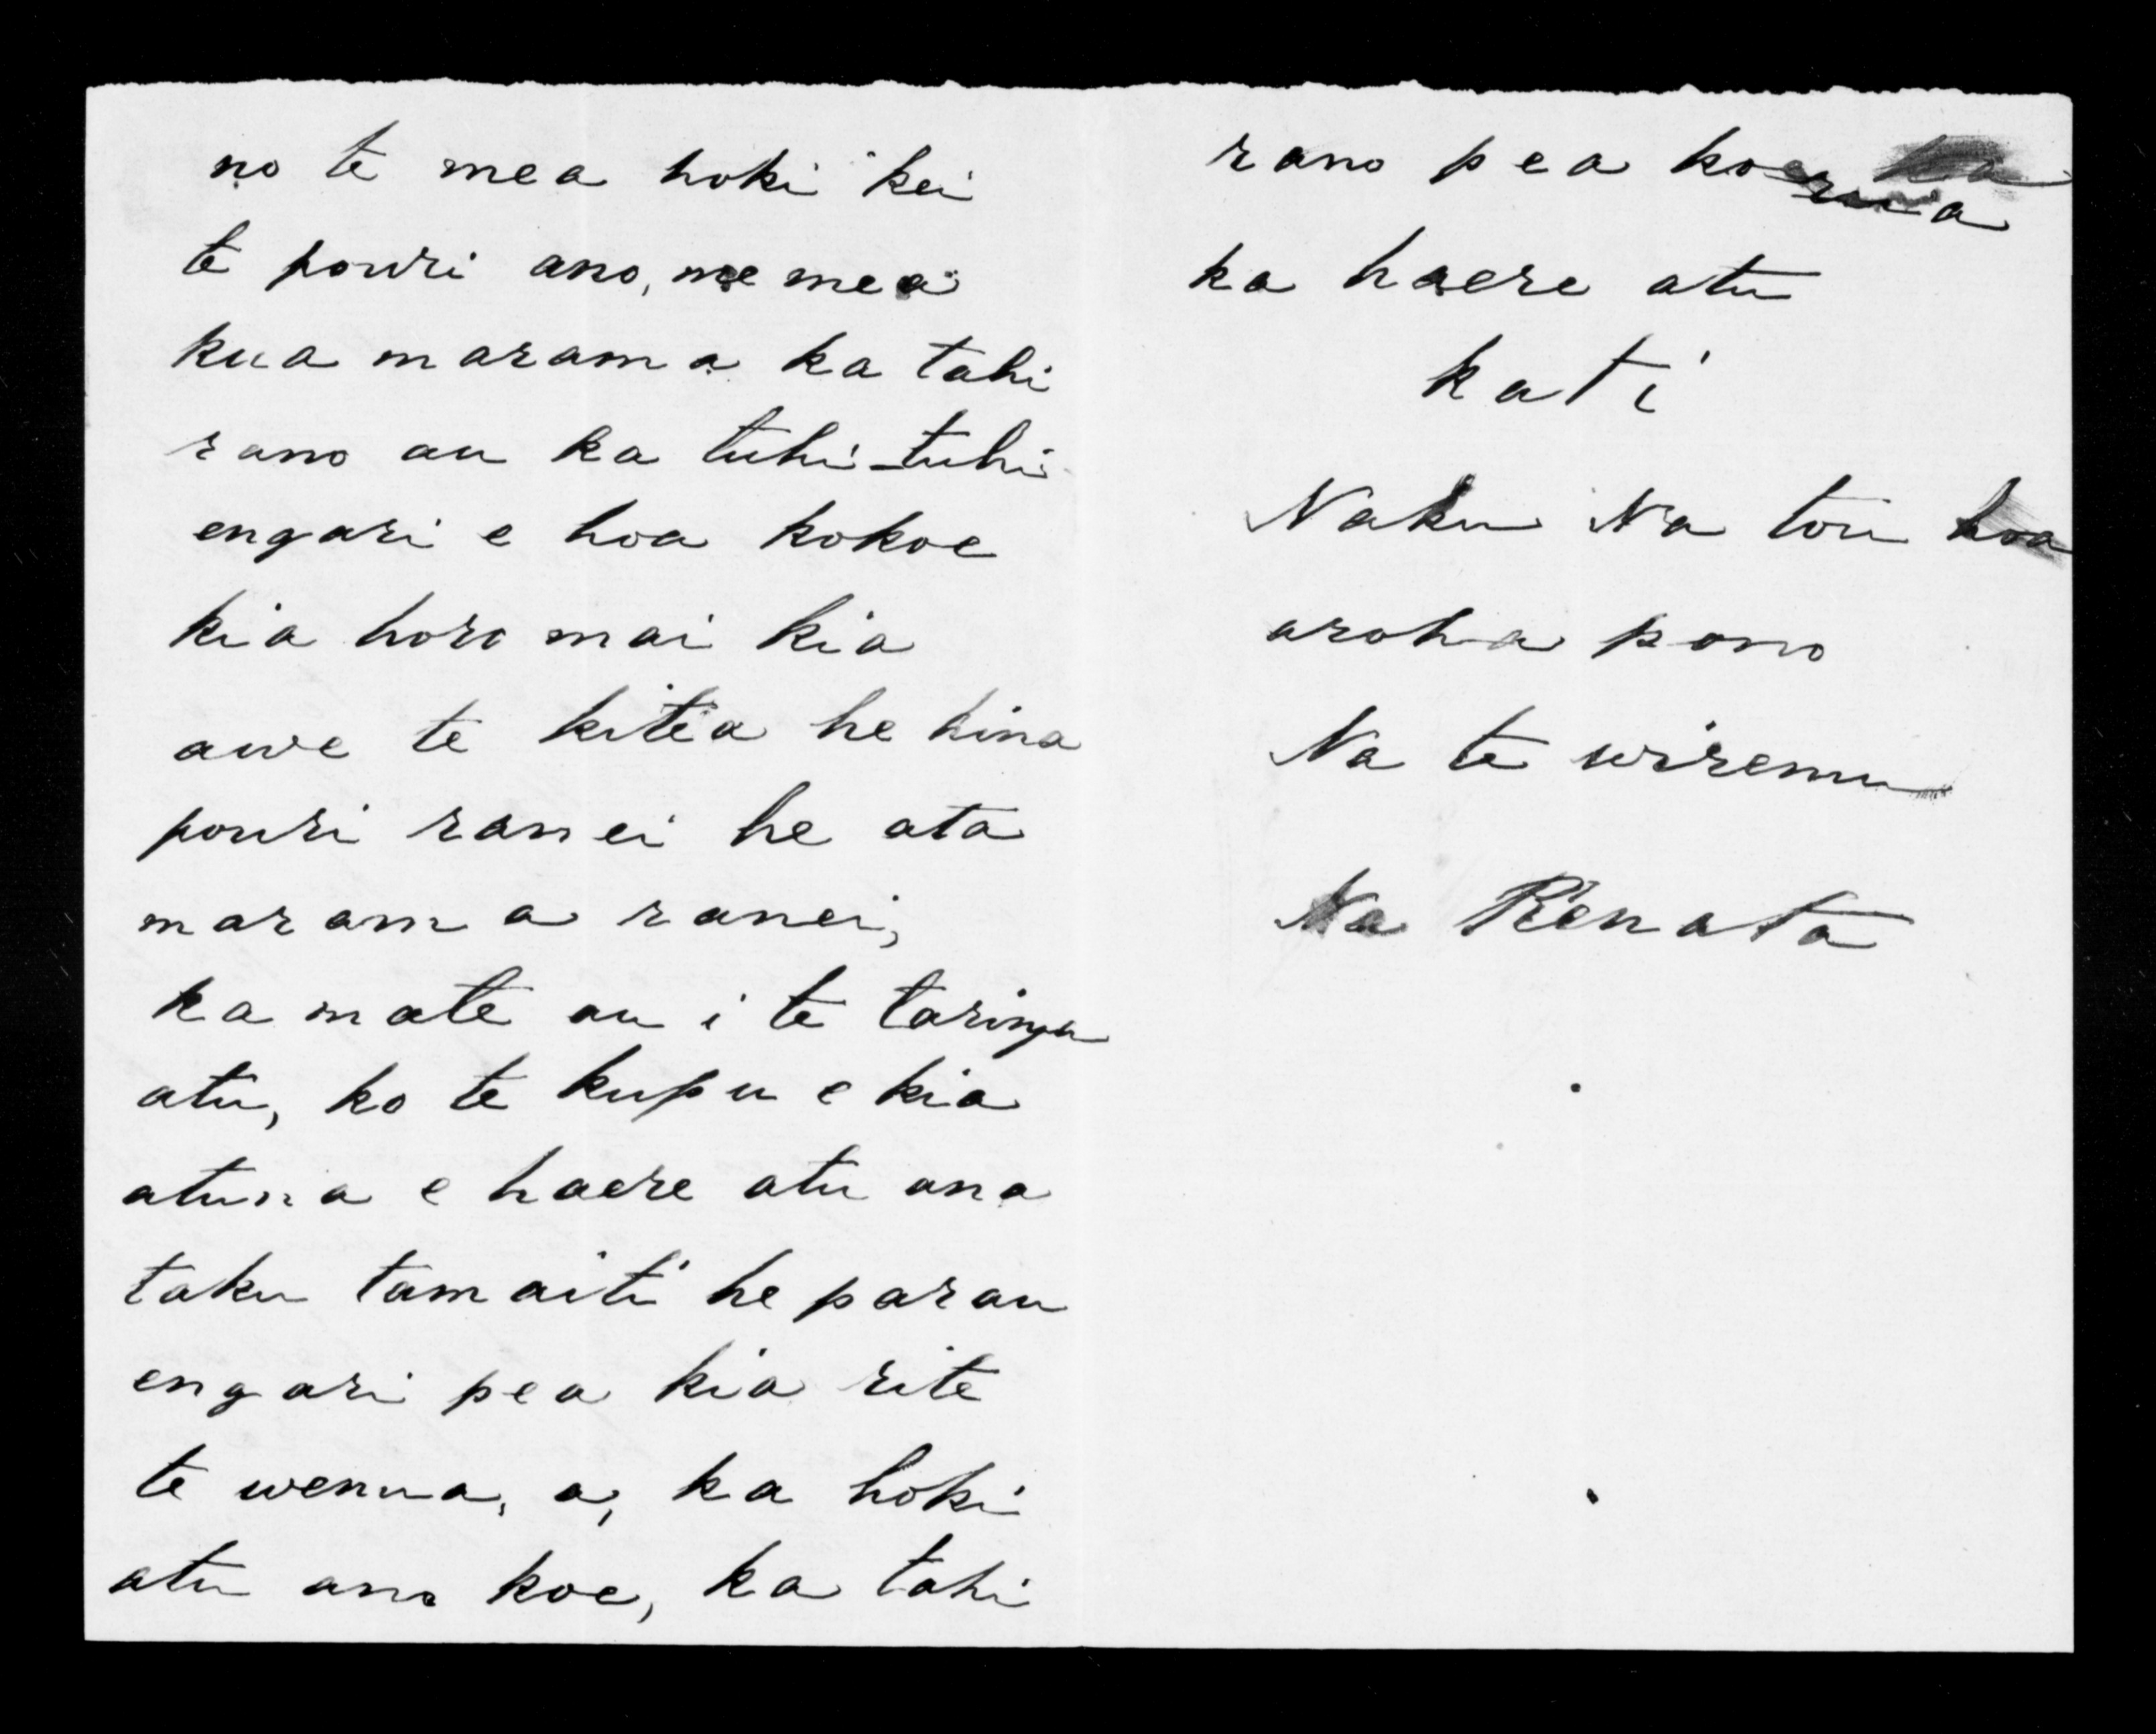 no te mea hoki kei
te pouri ano, me mea
kua marama ka tahi
rano au ka tuhi-tuhi
engari e hoa kokoe
kia horo mai kia
awe te kitea he hina
pouri ranei he ata
marama ranei,
ka mate au i te taringa
atu, ko te kupu e kia
atuna e haere atu ana
taku tamaiti he parau
engari pea kia rite
te wenua, a, ka hoki
atu ano koe, ka tahi
rano pea
ka haere atu
kati
Naku Na tou hoa
aroha pono
Na te wiremu
Na Renata